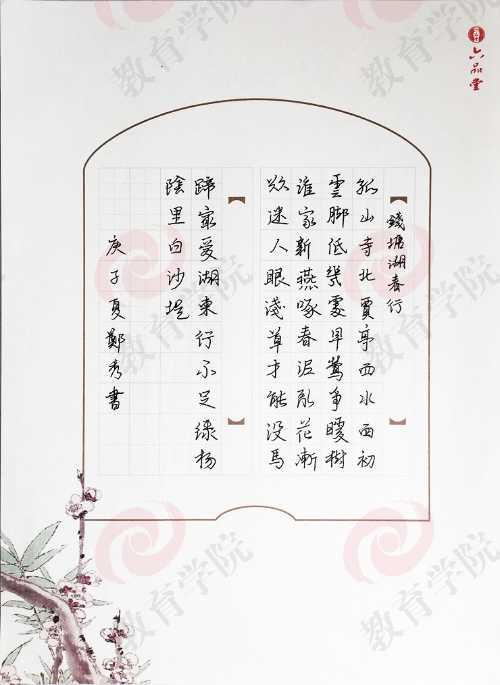 六品堂
錢塘湖春行
孤山寺北賈亭西水面初
雲脚低幾處早鶯爭暖樹
誰家新燕啄春泥亂花漸
欲迷人眼淺草才能没馬
蹄最愛湖東行不足緑楊
陰里白沙堤
庚子夏鄭秀書
教育学院
教育学院
教育学院
教育学院
教育学院
教育学院